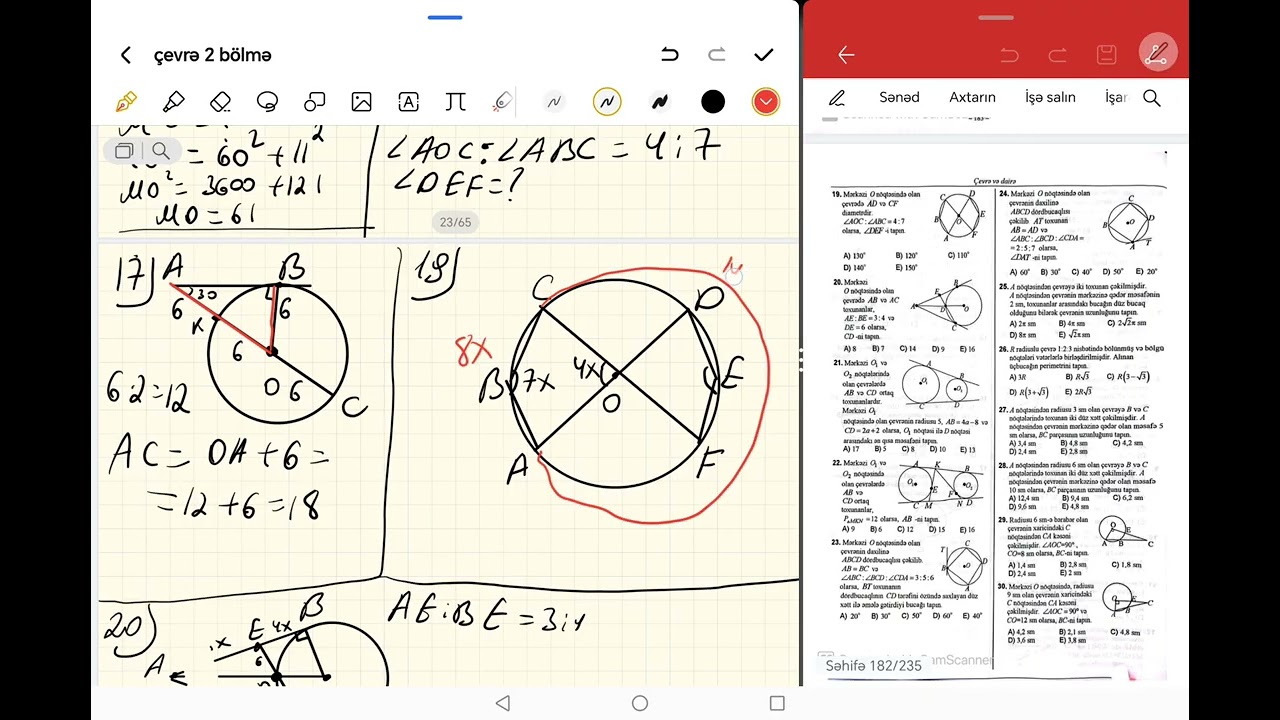 çevrə 2 bölmə
= 60² + 11²
MO² = 3600 + 121
MO = 61
∠AOC : ∠ABC = 4 : 7
∠DEF = ?
23/65
17) A B
6 30 6
K
6
O 6
C
6·2=12
AC = OA + 6 =
= 12 + 6 = 18
19)
C D
8x
B 7x 4x E
O
A F
20)
B
E 4x
6
A
AE : BE = 3 : 4
Sənəd Axtarın İşə salın İşar
Çevrə və dairə
19. Mərkəzi O nöqtəsində olan
çevrədə AD və CF
diametrdir.
∠AOC : ∠ABC = 4 : 7
olarsa, ∠DEF -i tapın.
A) 130° B) 120° C) 110°
D) 140° E) 150°
20. Mərkəzi
O nöqtəsində olan
çevrədə AB və AC
toxunanlar,
AE : BE = 3 : 4 və
DE = 6 olarsa,
CD -ni tapın.
A) 8 B) 7 C) 14 D) 9 E) 16
21. Mərkəzi O₁ və
O₂ nöqtələrində
olan çevrələrdə
AB və CD ortaq
toxunanlardır.
Mərkəzi O₁
nöqtəsində olan çevrənin radiusu 5, AB = 4a − 8 və
CD = 2a + 2 olarsa, O₁ nöqtəsi ilə D nöqtəsi
arasındakı ən qısa məsafəni tapın.
A) 17 B) 5 C) 8 D) 10 E) 13
22. Mərkəzi O₁ və
O₂ nöqtəsində
olan çevrələrdə
AB və
CD ortaq
toxunanlar,
A) 9 B) 6 C) 12 D) 15 E) 16
23. Mərkəzi O nöqtəsində olan
çevrənin daxilinə
ABCD dördbucaqlısı çəkilib.
AB = BC və
∠ABC : ∠BCD : ∠CDA = 3 : 5 : 6
olarsa, BT toxunanının
dördbucaqlının CD tərəfini özündə saxlayan düz
xətt ilə əmələ gətirdiyi bucağı tapın.
A) 20° B) 30° C) 50° D) 60° E) 40°
24. Mərkəzi O nöqtəsində olan
çevrənin daxilinə
ABCD dördbucaqlısı
çəkilib. AT toxunan
AB = AD və
∠ABC : ∠BCD : ∠CDA =
= 2 : 5 : 7 olarsa,
∠DAT -ni tapın.
A) 60° B) 30° C) 40° D) 50° E) 20°
25. A nöqtəsindən çevrəyə iki toxunan çəkilmişdir.
A nöqtəsindən çevrənin mərkəzinə qədər məsafənin
2 sm, toxunanlar arasındakı bucağın düz bucaq
olduğunu bilərək çevrənin uzunluğunu tapın.
A) 2π sm B) 4π sm C) 2√2π sm
D) 8π sm E) √2π sm
26. R radiuslu çevrə 1:2:3 nisbətində bölünmüş və bölgü
nöqtələri vətərlərlə birləşdirilmişdir. Alınan
üçbucağın perimetrini tapın.
A) 3R B) R√3 C) R(3−√3)
D) R(3+√3) E) 2R√3
27. A nöqtəsindən radiusu 3 sm olan çevrəyə B və C
nöqtələrində toxunan iki düz xətt çəkilmişdir. A
nöqtəsindən çevrənin mərkəzinə qədər olan məsafə 5
sm olarsa, BC parçasının uzunluğunu tapın.
A) 3,4 sm B) 4,8 sm C) 4,2 sm
D) 2,4 sm E) 2,8 sm
28. A nöqtəsindən radiusu 6 sm olan çevrəyə B və C
nöqtələrində toxunan iki düz xətt çəkilmişdir. A
nöqtəsindən çevrənin mərkəzinə qədər olan məsafə
10 sm olarsa, BC parçasının uzunluğunu tapın.
A) 12,4 sm B) 9,4 sm C) 6,2 sm
D) 9,6 sm E) 4,8 sm
29. Radiusu 6 sm-ə bərabər olan
çevrənin xaricindəki C
nöqtəsindən CA kəsəni
çəkilmişdir. ∠AOC=90°,
CO=8 sm olarsa, BC-ni tapın.
A) 1,4 sm B) 2,8 sm C) 1,8 sm
D) 2,4 sm E) 2 sm
30. Mərkəzi O nöqtəsində, radiusu
9 sm olan çevrənin xaricindəki
C nöqtəsindən CA kəsəni
çəkilmişdir. ∠AOC = 90° və
CO=12 sm olarsa, BC-ni tapın.
A) 4,2 sm B) 2,1 sm C) 4,8 sm
D) 3,6 sm E) 3,8 sm
Səhifə 182/235